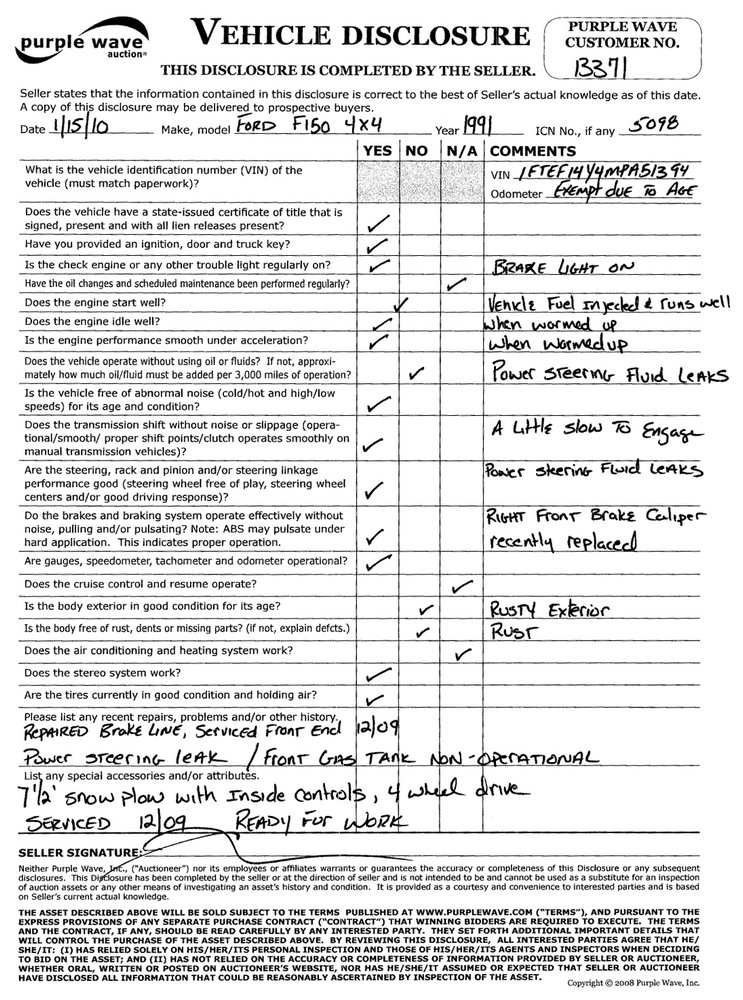 purple wave
auction®
VEHICLE DISCLOSURE
PURPLE WAVE
CUSTOMER NO.
13371
THIS DISCLOSURE IS COMPLETED BY THE SELLER.
Seller states that the information contained in this disclosure is correct to the best of Seller's actual knowledge as of this date.
A copy of this disclosure may be delivered to prospective buyers.
Date 1/15/10 Make, model FORD F150 4X4 Year 1991 ICN No., if any 5098
YES NO N/A COMMENTS
What is the vehicle identification number (VIN) of the
vehicle (must match paperwork)?
VIN 1FTEF14Y4MPA51394
Odometer EXEMPT DUE TO AGE
Does the vehicle have a state-issued certificate of title that is
signed, present and with all lien releases present? ✓
Have you provided an ignition, door and truck key? ✓
Is the check engine or any other trouble light regularly on? ✓ BRAKE LIGHT ON
Have the oil changes and scheduled maintenance been performed regularly? ✓
Does the engine start well? ✓ Vehicle Fuel Injected & runs well
Does the engine idle well? ✓ when warmed up
Is the engine performance smooth under acceleration? ✓ when warmed up
Does the vehicle operate without using oil or fluids? If not, approxi-
mately how much oil/fluid must be added per 3,000 miles of operation? ✓ Power Steering Fluid Leaks
Is the vehicle free of abnormal noise (cold/hot and high/low
speeds) for its age and condition? ✓
Does the transmission shift without noise or slippage (opera-
tional/smooth/ proper shift points/clutch operates smoothly on
manual transmission vehicles)? ✓ A Little slow To Engage
Are the steering, rack and pinion and/or steering linkage
performance good (steering wheel free of play, steering wheel
centers and/or good driving response)? ✓ Power steering Fluid Leaks
Do the brakes and braking system operate effectively without
noise, pulling and/or pulsating? Note: ABS may pulsate under
hard application. This indicates proper operation. ✓
RIGHT Front Brake Caliper
recently replaced
Are gauges, speedometer, tachometer and odometer operational? ✓
Does the cruise control and resume operate? ✓
Is the body exterior in good condition for its age? ✓ RUSTY Exterior
Is the body free of rust, dents or missing parts? (if not, explain defcts.) ✓ RUST
Does the air conditioning and heating system work? ✓
Does the stereo system work? ✓
Are the tires currently in good condition and holding air? ✓
Please list any recent repairs, problems and/or other history.
REPAIRED Brake LINE, Serviced Front End 12/09
Power steering leak / FRONT GAS TANK NON-OPERATIONAL
List any special accessories and/or attributes.
7 1/2' snow plow with Inside controls, 4 wheel drive
SERVICED 12/09 READY FOR WORK
SELLER SIGNATURE:
Neither Purple Wave, Inc., ("Auctioneer") nor its employees or affiliates warrants or guarantees the accuracy or completeness of this Disclosure or any subsequent
disclosures. This Disclosure has been completed by the seller or at the direction of seller and is not intended to be and cannot be used as a substitute for an inspection
of auction assets or any other means of investigating an asset's history and condition. It is provided as a courtesy and convenience to interested parties and is based
on Seller's current actual knowledge.
THE ASSET DESCRIBED ABOVE WILL BE SOLD SUBJECT TO THE TERMS PUBLISHED AT WWW.PURPLEWAVE.COM ("TERMS"), AND PURSUANT TO THE
EXPRESS PROVISIONS OF ANY SEPARATE PURCHASE CONTRACT ("CONTRACT") THAT WINNING BIDDERS ARE REQUIRED TO EXECUTE. THE TERMS
AND THE CONTRACT, IF ANY, SHOULD BE READ CAREFULLY BY ANY INTERESTED PARTY. THEY SET FORTH ADDITIONAL IMPORTANT DETAILS THAT
WILL CONTROL THE PURCHASE OF THE ASSET DESCRIBED ABOVE. BY REVIEWING THIS DISCLOSURE, ALL INTERESTED PARTIES AGREE THAT HE/
SHE/IT: (I) HAS RELIED SOLELY ON HIS/HER/ITS PERSONAL INSPECTION AND THOSE OF HIS/HER/ITS AGENTS AND INSPECTORS WHEN DECIDING
TO BID ON THE ASSET; AND (II) HAS NOT RELIED ON THE ACCURACY OR COMPLETENESS OF INFORMATION PROVIDED BY SELLER OR AUCTIONEER,
WHETHER ORAL, WRITTEN OR POSTED ON AUCTIONEER'S WEBSITE, NOR HAS HE/SHE/IT ASSUMED OR EXPECTED THAT SELLER OR AUCTIONEER
HAVE DISCLOSED ALL INFORMATION THAT COULD BE REASONABLY ASCERTAINED BY INSPECTION OF THE ASSET.
Copyright © 2008 Purple Wave, Inc.